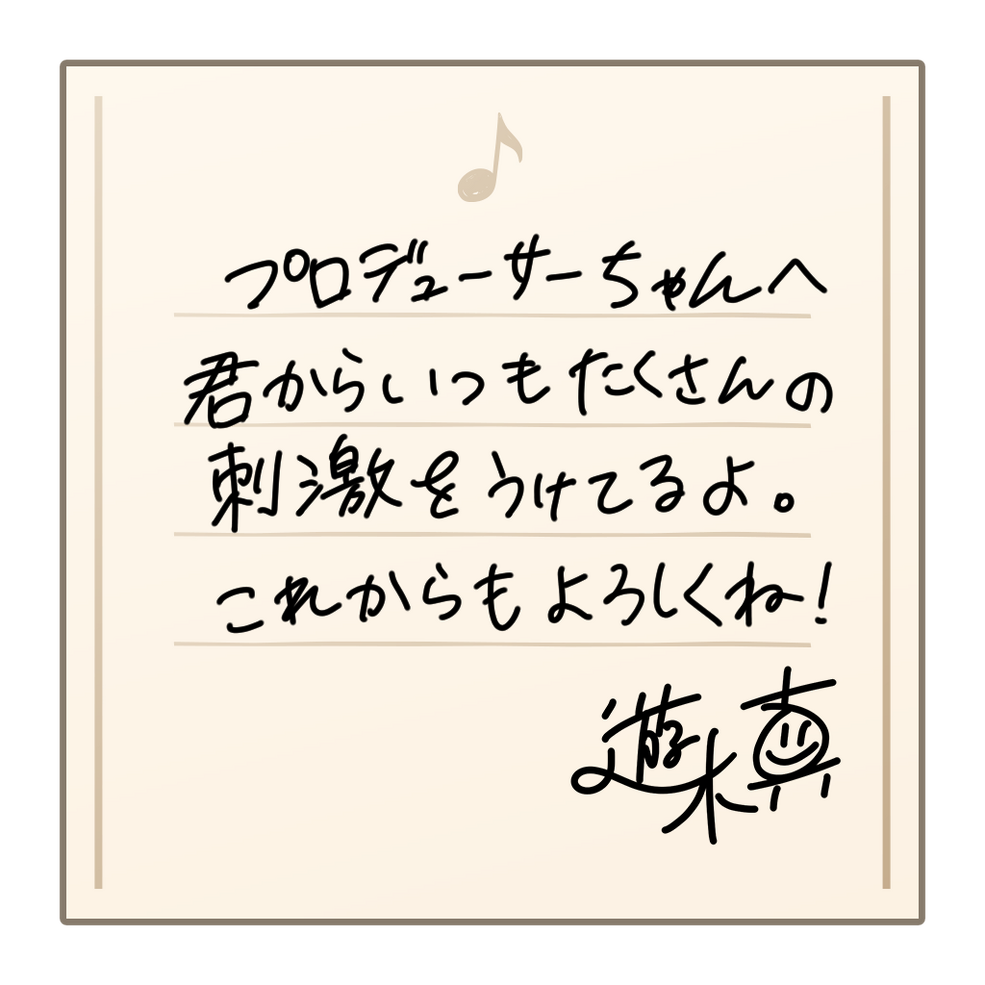 プロデューサーちゃんへ
君からいつもたくさんの
刺激をうけてるよ。
これからもよろしくね!
遊木真